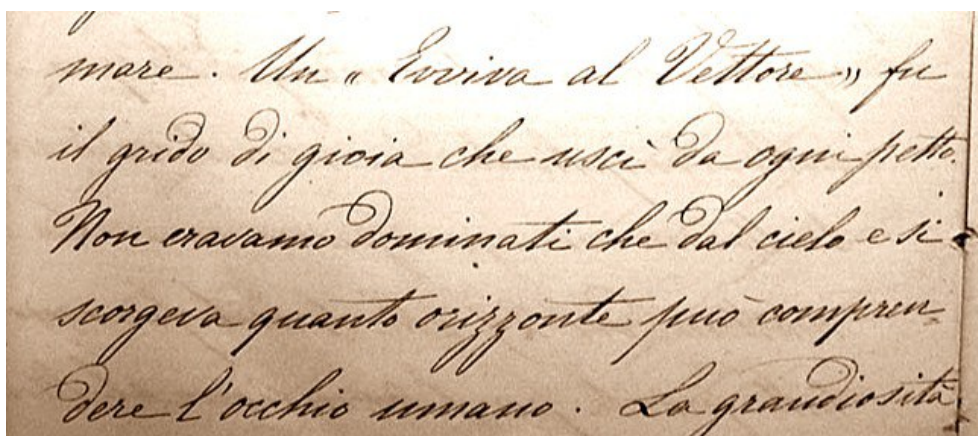 mare. Un « Evviva al Vettore » fu
il grido di gioia che uscì da ogni petto.
Non eravamo dominati che dal cielo e si
scorgeva quanto orizzonte può compren-
dere l'occhio umano. La grandiosità